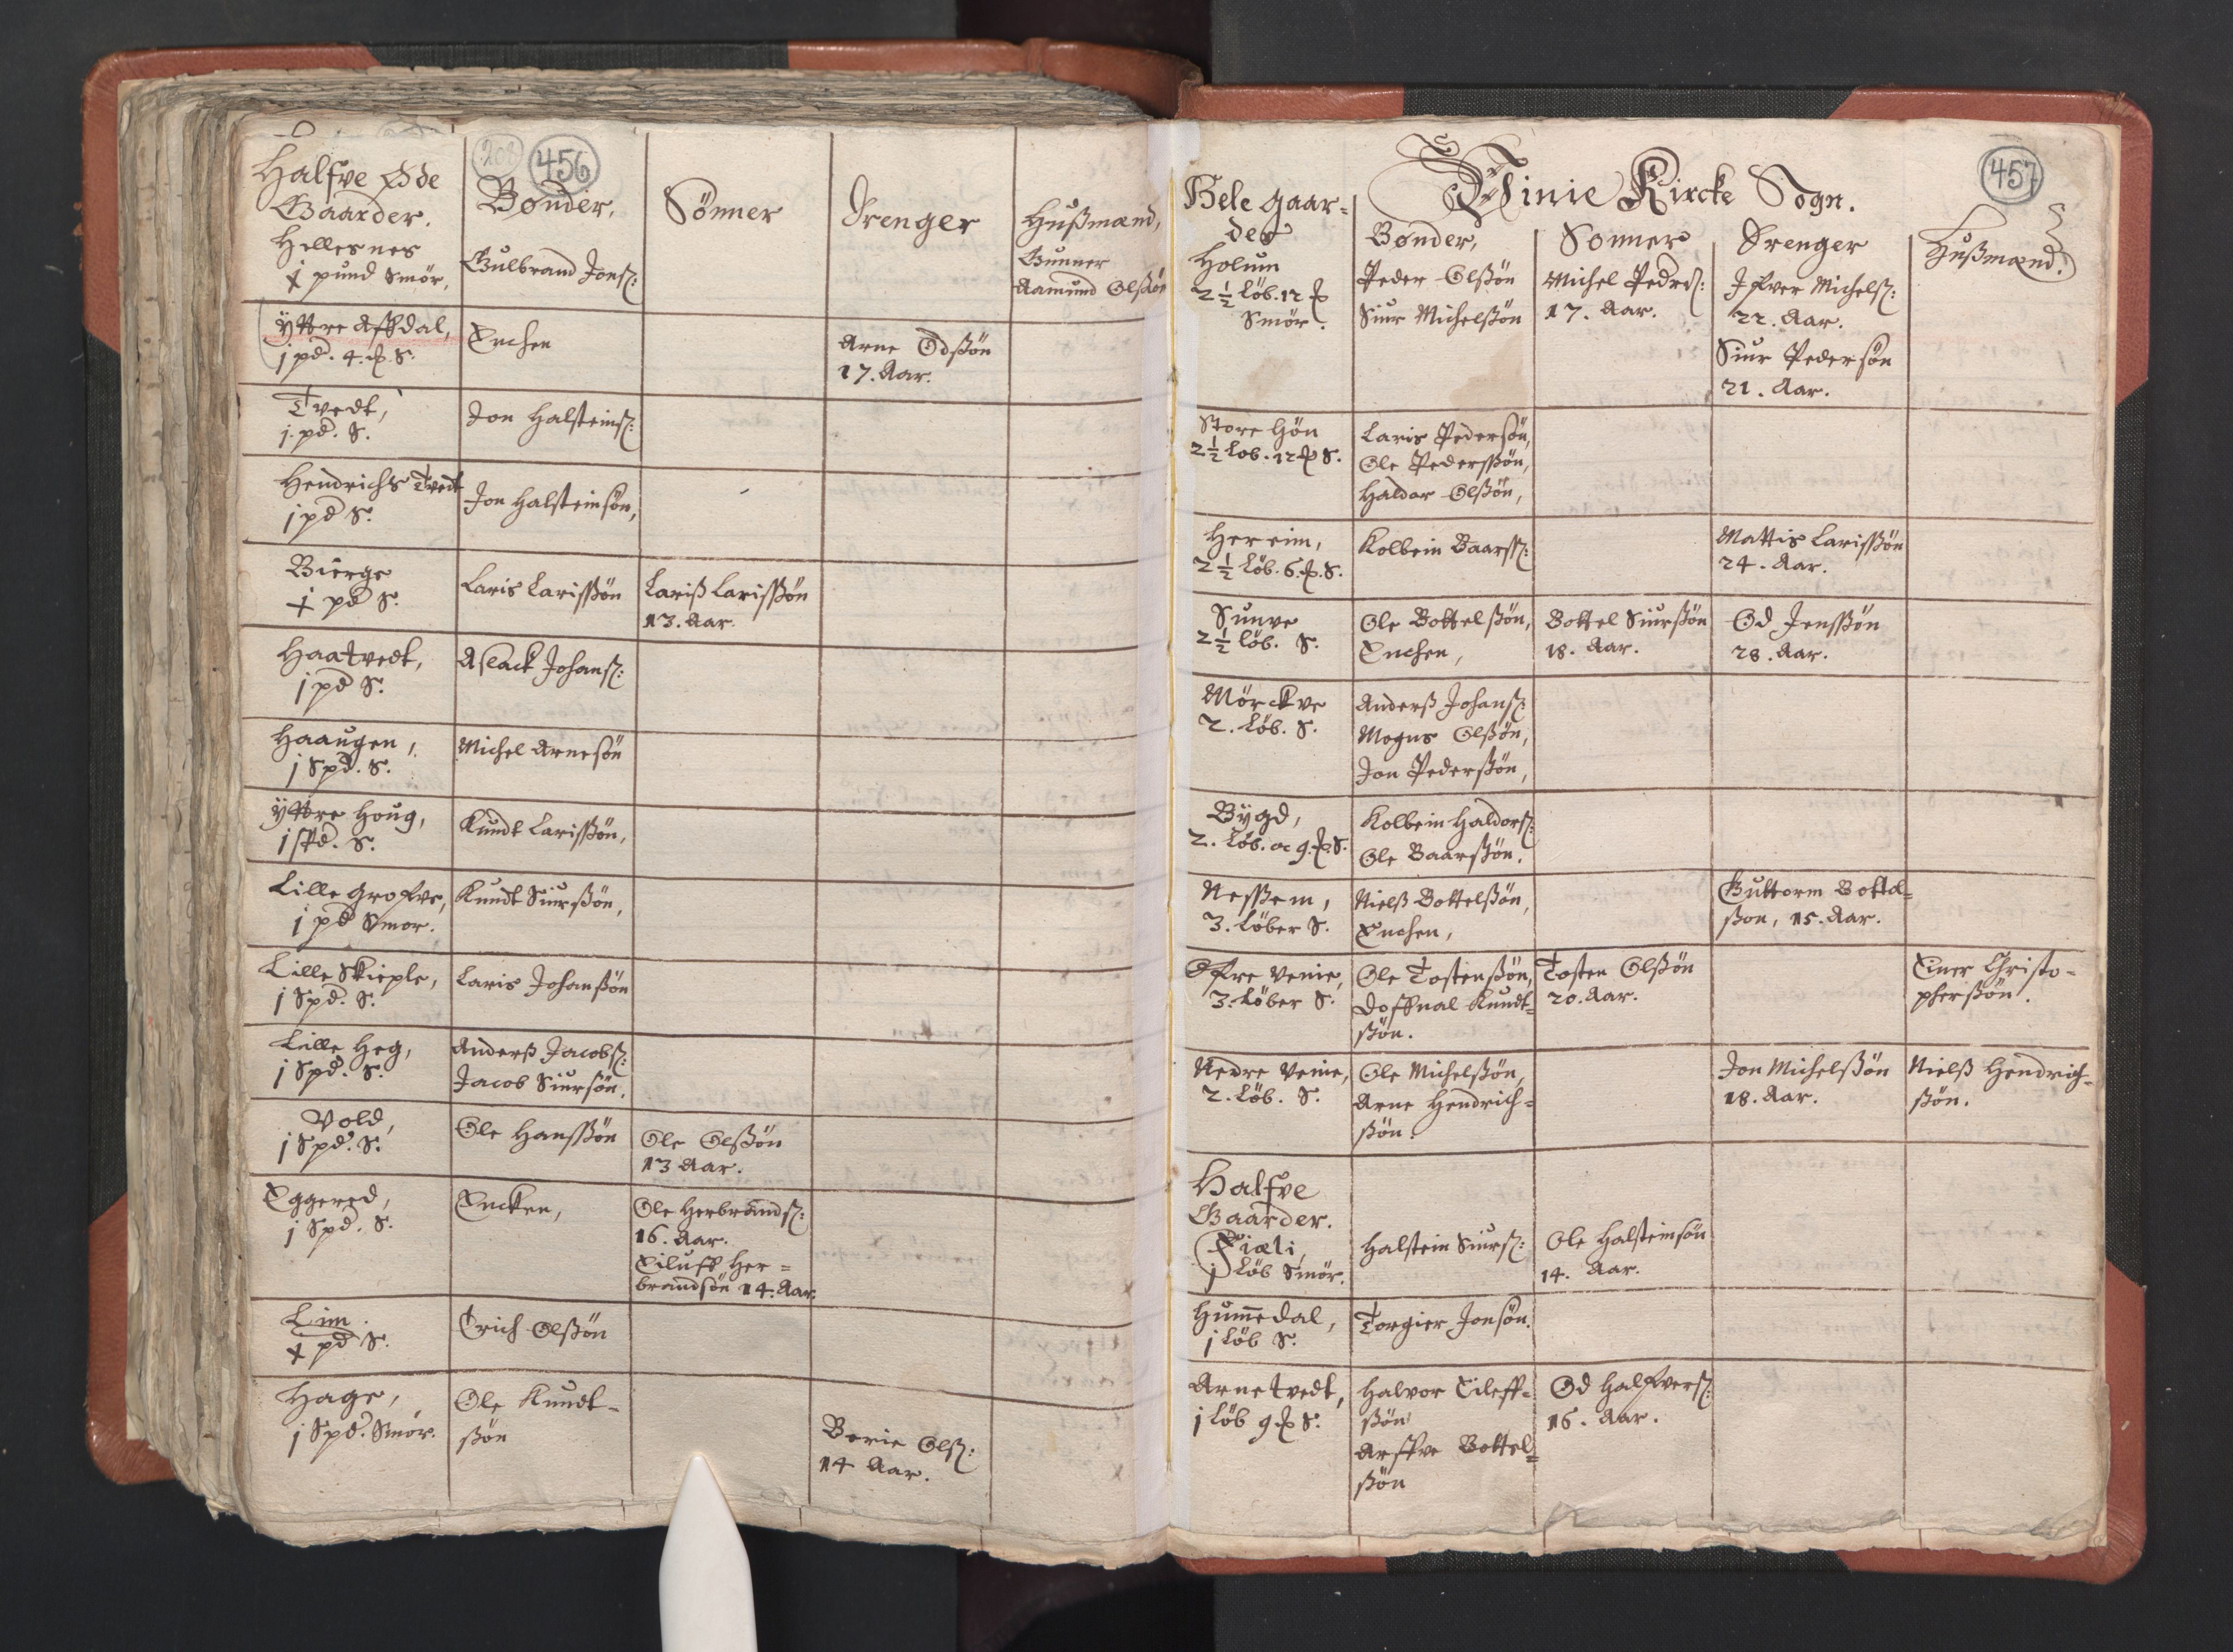 456
Halfve Øde
Gaarder.
Bønder,
Sønner
Drenger
Hußmænd,
Hellesnes
1 pund Smör,
Gulbrand Jonß:
Gunner
Aamund Olßön
Yttre Affdal,
j pd. 4. S.
Enchen
Arne Odßön
17. Aar.
Tvedt,
j. pd. S.
Jon Halsteinß:
Hendrichs Tvedt
j pd S.
Jon Halsteinsön,
Bierge
1 pd S.
Laris Larißön
Lariß Larißön
13. Aar.
Haatvedt,
j pd S.
Aslack Johanß:
Haaugen,
j Spd. S.
Michel Arnesön
Yttre Houg,
j Spd. S.
Knudt Larißön,
Lille Grofve,
j pd Smor.
Knudt Siurßön,
Lille Skieple,
j Spd. S.
Laris Johanßön
Lille Heg,
j Spd. S.
Anderß Jacobß:
Jacob Siursön.
Vold,
j Spd. S.
Ole Hanßön
Ole Olßön
13 Aar.
Eggered,
j Spd. S.
Encken,
Ole Herbrandß:
16. Aar.
Eiluff Her=
brandsön 14. Aar.
Lim.
1 pd S.
Erich Olßön
Hage,
j Spd. Smör.
Ole Knudt=
ßön
Berie Olß:
14 Aar.
457
Vinie Kircke Sogn.
Hele gaar=
der
Bønder,
Sønner
Drenger
Hußmænd.
Holum
2 ½ Löb. 12
Smör.
Peder Olßön
Siur Michelßön
Michel Pedrß:
17. Aar.
Ifver Michelß:
22. Aar.
Siur Pedersön
21. Aar.
Store Hön
2 ½ Löb. 12 S.
Laris Pedersön,
Ole Pederßön,
Haldor Olßön,
Hereim,
2 ½ Löb. 6. S.
Kolbein Baarß:
Mattis Larißön
24. Aar.
Sunve
2 ½ löb. S.
Ole Bottelßön,
Enchen,
Bottel Siurßön
18. Aar.
Od Jenßön
28. Aar.
Mörckve
2. Löb. S.
Anderß Johanß:
Mognus Olßön,
Jon Pederßön,
Bygd,
2. Löb. oc 9. S.
Kolbein Haldorß:
Ole Baarßön.
Neßem,
3. Löber S.
Nielß Bottelßön,
Enchen,
Guttorm Bottel=
ßon, 15. Aar.
Öfre Venie,
3. Löber S.
Ole Tostenßön,
Doffnal Knudt=
ßön.
Tosten Olßön
20. Aar.
Einer Christo=
pherßön.
Nedre Venie,
2. Löb. S.
Ole Michelßön,
Arne Hendrich=
ßön.
Jon Michelßön
18. Aar.
Nielß Hendrich=
ßön.
Halfve
Gaarder.
Fiæli,
j Löb Smör.
Halstein Siurß:
Ole Halsteinsön
14. Aar.
Hum̅edal,
j Löb S.
Torgier Jonsön.
Arnetvedt,
j Löb 9 S.
Halvor Eileff=
ßön
Arffve Bottel=
ßön
Od Halfverß:
16. Aar.